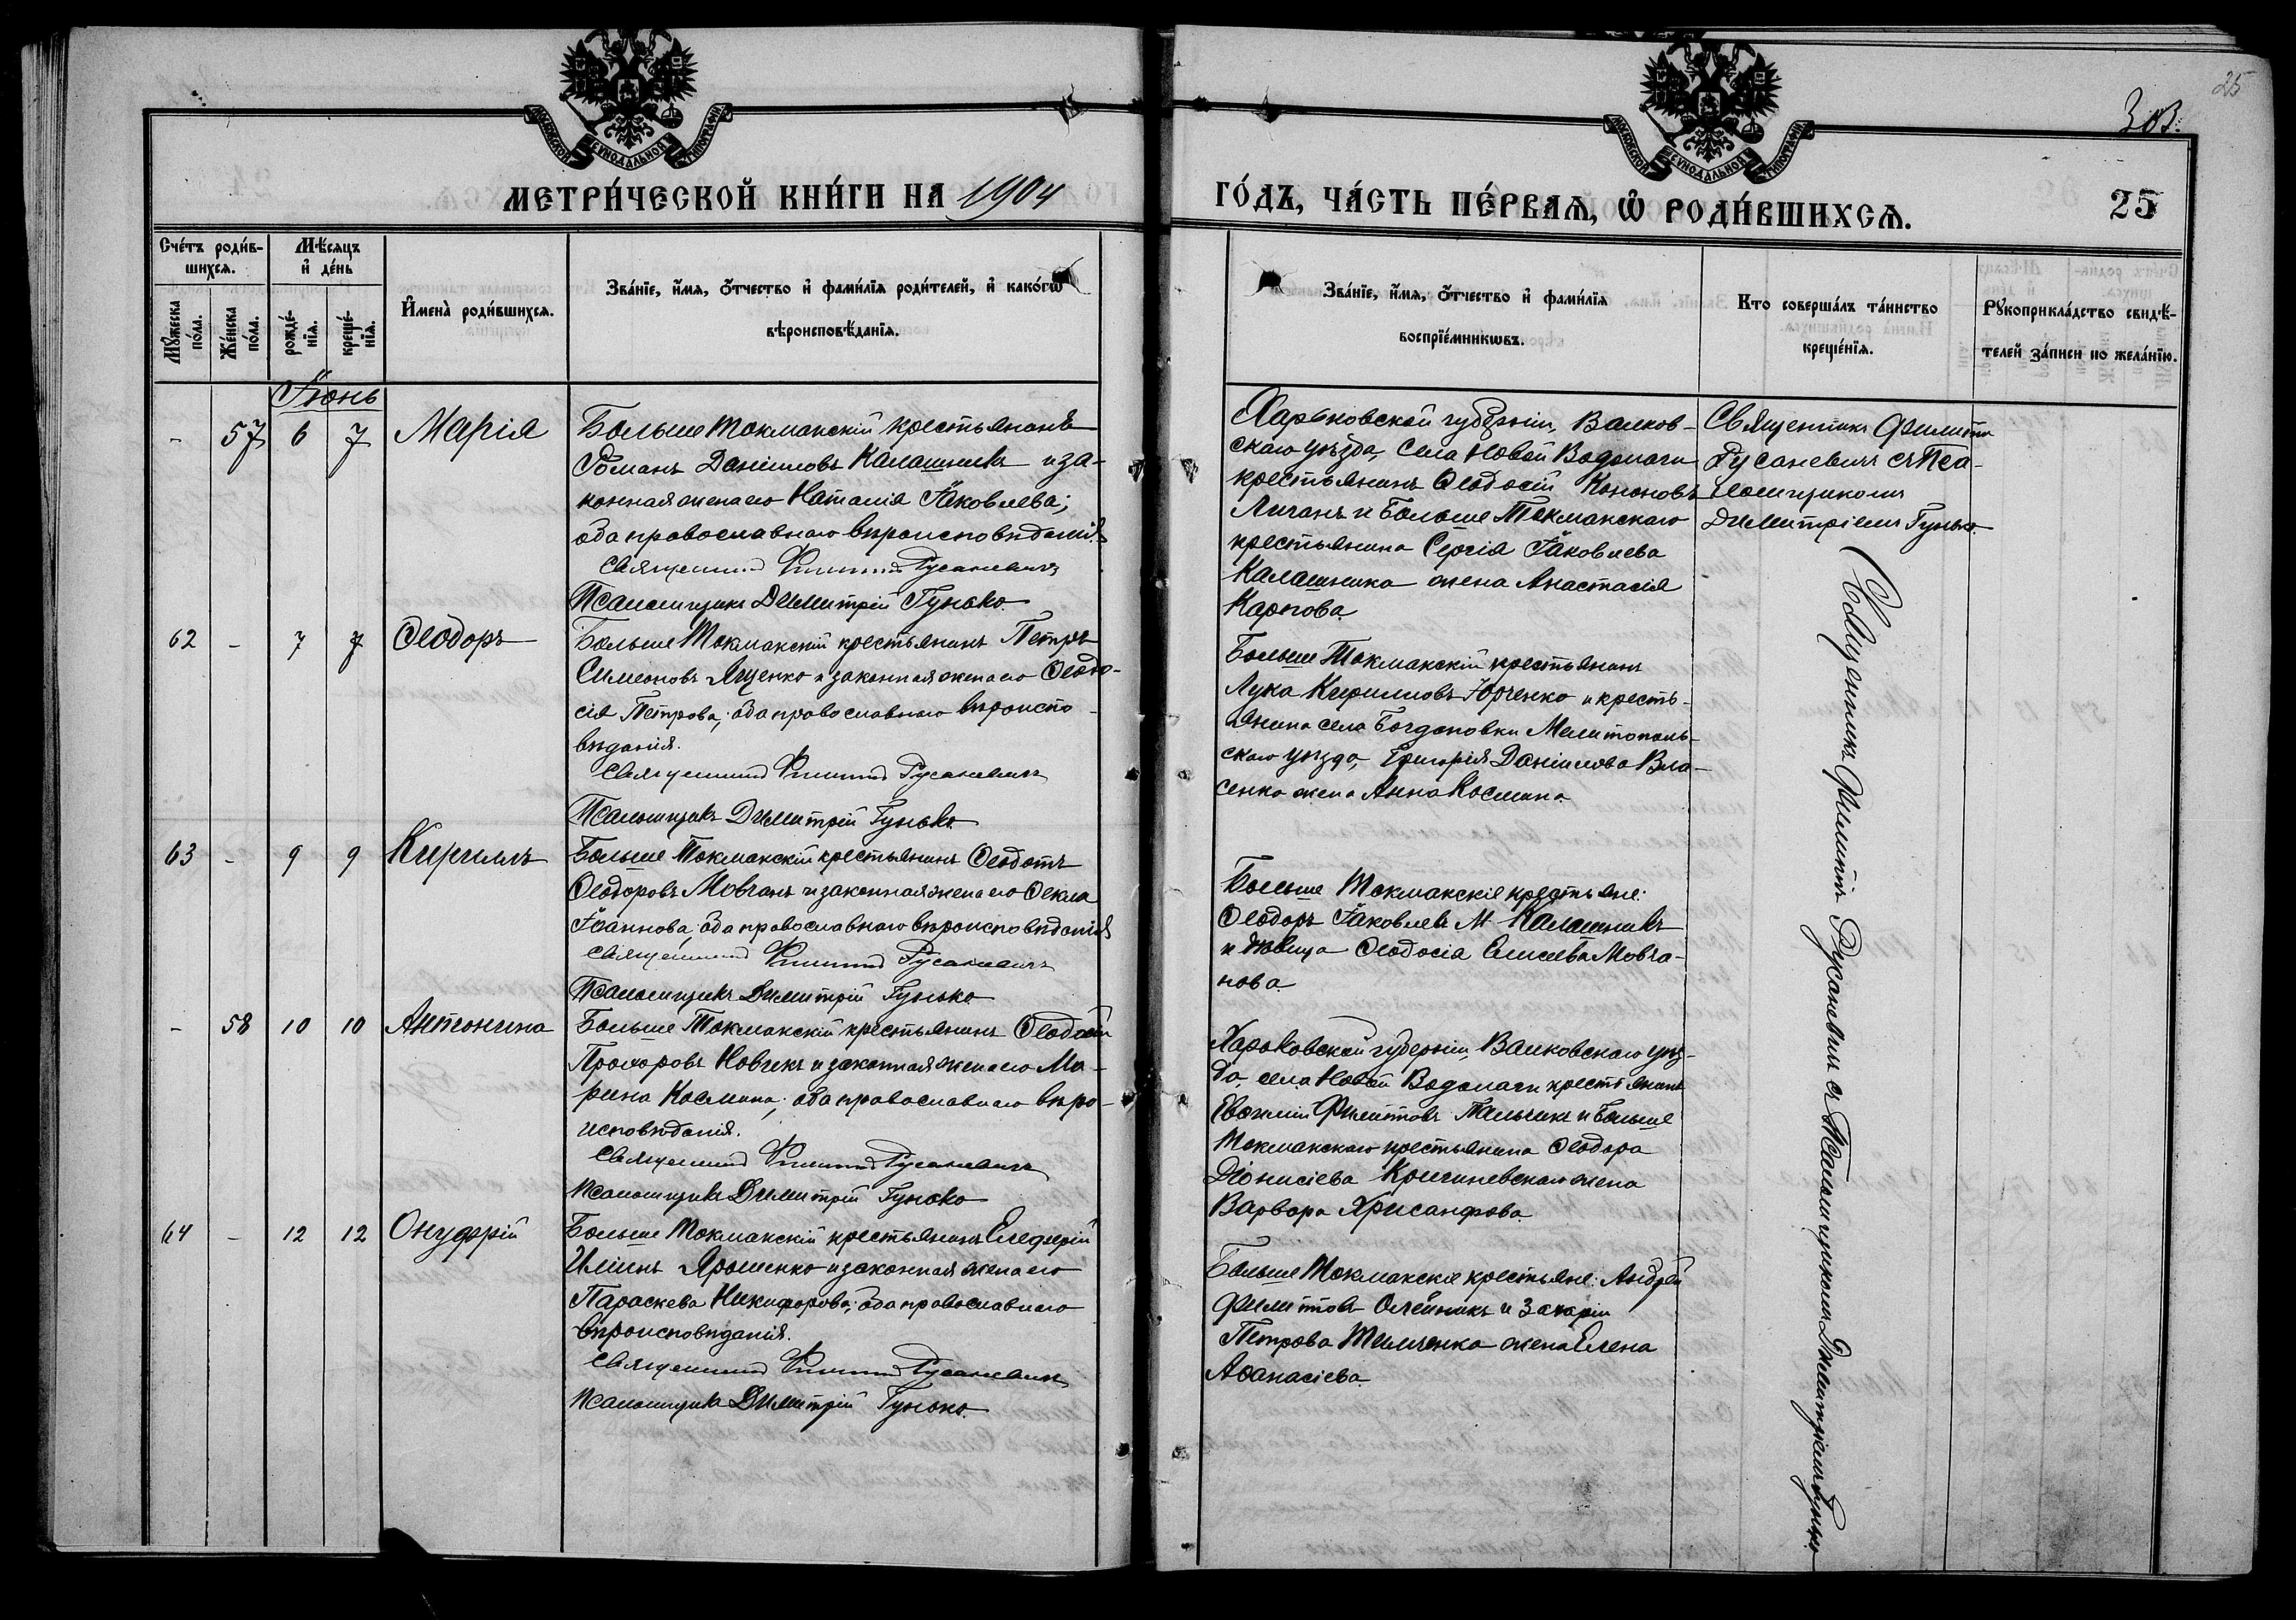 25
303.
МОСКОВСКОЙ СѴНОДАЛЬНОЙ ТИПОГРАФІИ
МОСКОВСКОЙ СѴНОДАЛЬНОЙ ТИПОГРАФІИ
МЕТРИ́ЧЕСКОЙ КНИ́ГИ НА 1904
ГО́ДЪ, ЧА́СТЬ ПЕ́РВАѦ, Ѡ҆ РОДИ́ВШИХСѦ.
25
Сче́тъ роди́в-
шихсѧ.
Мѣ́сѧцъ
и҆ де́нь
Мꙋ́жеска по́ла.
Же́нска по́ла.
рожде́-
нїѧ.
креще́-
нїѧ.
И҆мена̀ роди́вшихсѧ.
Зва́нїе, и҆́мѧ, ѻ҆́тчество и҆ фами́лїѧ роди́телей, и҆ како́гѡ
вѣроисповѣ́данїѧ.
Зва́нїе, и҆́мѧ, ѻ҆́тчество и҆ фами́лїѧ
воспрїе́мникѡвъ.
Кто̀ соверша́лъ та́инство
креще́нїѧ.
Рꙋкоприкла́дство свидѣ́-
телей за́писи по жела́нїю.
Іюнь
- 57 6 7 Марія
Больше Токмакскій крестьянинъ
Романъ Даніиловъ Калашникъ и за-
конная жена его Наталія Іаковлева;
оба православнаго вѣроисповѣданія.
Священникъ Филиппъ Русаневичъ
Псаломщикъ Димитрій Гунько.
Харьковской губерніи, Валков-
скаго уѣзда, села Новой Водолаги
крестьянинъ Ѳеодосій Кононовъ
Личанъ и Больше Токмакскаго
крестьянина Сергія Іаковлева
Калашника жена Анастасія
Карпова.
Священникъ Филиппъ
Русаневичъ съ Пса-
ломщикомъ
Димитріемъ Гунько.
62 - 7 7 Ѳеодоръ
Больше Токмакскій крестьянинъ Петръ
Симеоновъ Яценко и законная жена его Ѳеодо-
сія Петрова; оба православнаго вѣроиспо-
вѣданія.
Священникъ Филиппъ Русаневичъ
Псаломщикъ Димитрій Гунько.
Больше Токмакскій крестьянинъ
Лука Кирилловъ Юрченко и кресть-
янина села Богдановки Мелитополь-
скаго уѣзда, Григорія Даніилова Вла-
сенко жена Анна Космина.
63 - 9 9 Кириллъ
Больше Токмакскій крестьянинъ Ѳеодотъ
Ѳеодоровъ Мовчанъ и законная жена его Ѳекла
Іоаннова; оба православнаго вѣроисповѣданія
Священникъ Филиппъ Русаневичъ
Псаломщикъ Димитрій Гунько
Больше Токмакскіе крестьяне:
Ѳеодоръ Іаковлевъ М. Калашникъ
и дѣвица Ѳеодосія Елисеева Мовча-
нова.
- 58 10 10 Антонина
Больше Токмакскій крестьянинъ Ѳеодосій
Прохоровъ Новчекъ и законная жена его Ма-
рина Космина; оба православнаго вѣро-
исповѣданія.
Священникъ Филиппъ Русаневичъ
Псаломщикъ Димитрій Гунько
Харьковской губерніи, Валковскаго уѣз-
да, села Новой Водолаги крестьянинъ
Евѳимій Филипповъ Пальчикъ и Больше
Токмакскаго крестьянина Ѳеодора
Діонисіева Кричиневскаго жена
Варвара Хрисанфова.
64 - 12 12 Онуфрій
Больше Токмакскій крестьянинъ Елефѳерій
Иліинъ Ярошенко и законная жена его
Параскева Никифорова; оба православнаго
вѣроисповѣданія.
Священникъ Филиппъ Русаневичъ
Псаломщикъ Димитрій Гунько.
Больше Токмакскіе крестьяне: Андрей
Филипповъ Олейникъ и Захаріи
Петрова Тимченка жена Елена
Аѳанасіева.
Священникъ Филиппъ Русаневичъ съ Псаломщикомъ Димитріемъ Гунько